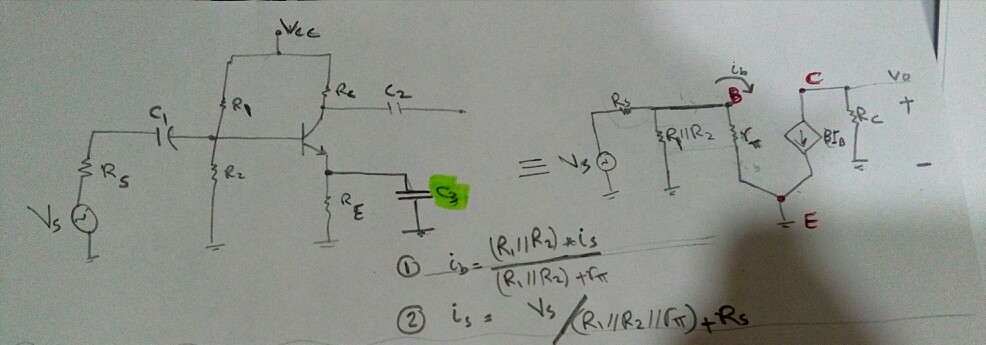 Vcc
C1
R1
Rc
C2
Rs
R2
RE
C3
Vs
≡
Rs
R1||R2
ib
B
rπ
C
Vo
+
βIB
Rc
-
Vs
E
① ib = (R1||R2) * is / (R1||R2) + rπ
② is = Vs / (R1||R2||rπ) + Rs